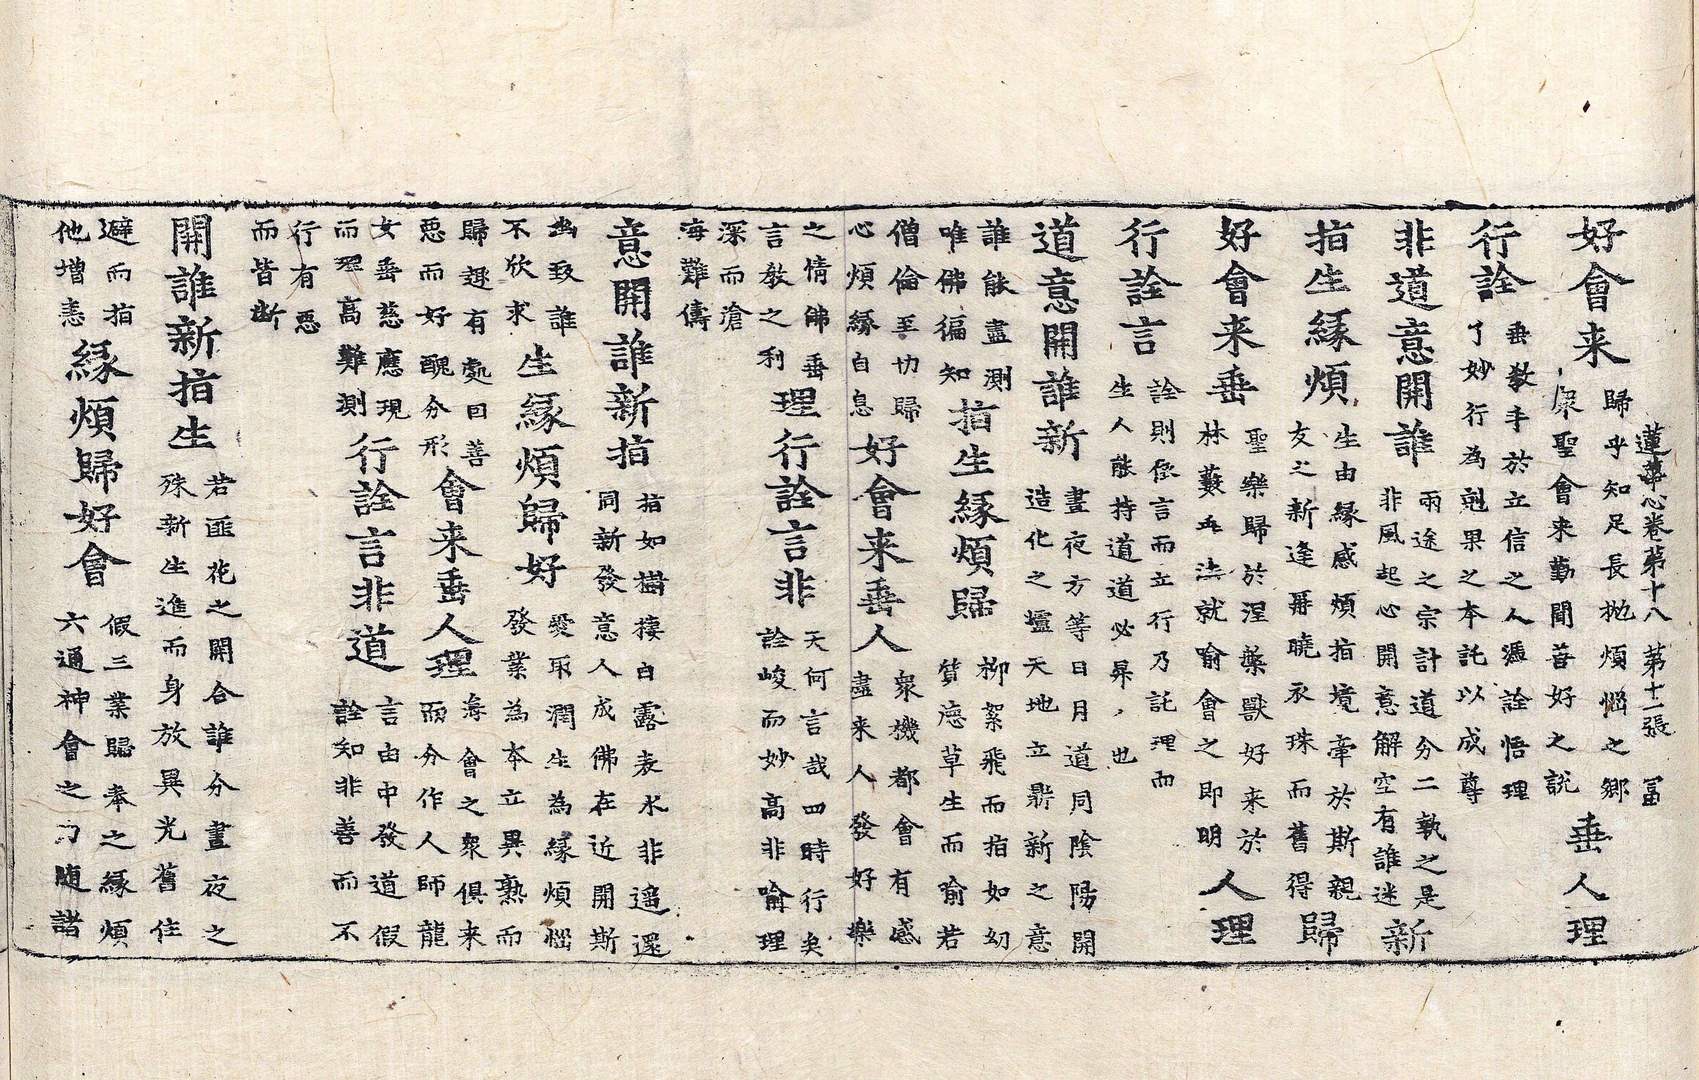 蓮華心卷第十八　第十二張　冨
好會来　歸乎知足長抛煩惱之鄉
康聖會来勤聞善好之說　垂人理
行詮　垂教手於立信之人憑詮悟理
了妙行為剋果之本託以成尊
非道意開誰　兩途之宗計道分二執之是
非風起心開意解空有誰迷　新
指生緣煩　生由緣感煩指境牽於斯親
友之新逢再曉衣珠而舊得　歸
好會来垂　聖樂歸於涅槃獸好来於
林藪五法就喻會之即明　人理
行詮言　詮則依言而立行乃託理而
生人能持道道必昇,也
道意開誰新　晝夜方等日月道同陰陽開
造化之壚天地立鼎新之意
誰能盡測
唯佛徧知　指生緣煩歸　柳絮飛而指如幻
質德草生而喻若
僧倫至切歸
心煩緣自息　好會来垂人　衆機都會有感
盡来人發好樂
之情佛垂
言教之利　理行詮言非　天何言哉四時行矣
詮峻而妙高非喻理
深而滄
海難儔
意開誰新指　指如樹棲白露表水非遥還
同新發意人成佛在近開斯
幽致誰
不欣求　生緣煩歸好　愛取潤生為緣煩惱
發業為本立異熟而
歸趣有處回善
惡而好醜分形　會来垂人理　海會之衆俱来
而分作人師龍
女垂慈應現
而理高難測　行詮言非道　言由中發道假
詮知非善而不
行有惡
而皆斷
開誰新指生　若匪花之開合誰分晝夜之
殊新生進而身放異光舊住
避而指
他增恚　緣煩歸好會　假三業歸奉之緣煩
六通神會之力随諸